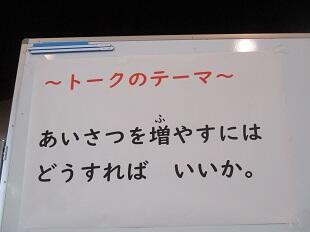 ～トークのテーマ～
ふ
あいさつを増やすには
どうすれば　いいか。